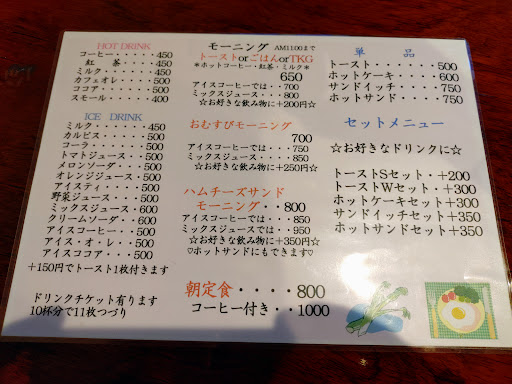 HOT DRINK
コーヒー・・・・450
紅　茶・・・・450
ミルク・・・・450
カフェオレ・・・500
ココア・・・・500
スモール・・・400
ICE DRINK
ミルク・・・・・450
カルピス・・・・500
コーラ・・・・・500
トマトジュース・・500
メロンソーダ・・500
オレンジジュース・500
アイスティ・・・・500
野菜ジュース・・・500
ミックスジュース・600
クリームソーダ・・600
アイスコーヒー・・500
アイス・オ・レ・・500
アイスココア・・・500
+150円でトースト1枚付きます
ドリンクチケット有ります
10杯分で11枚つづり
モーニング AM1100まで
トーストorごはんorTKG
＊ホットコーヒー・紅茶・ミルク＊
650
アイスコーヒーでは・・700
ミックスジュース・・・800
☆お好きな飲み物に+200円☆
おむすびモーニング
700
アイスコーヒーでは・・・750
ミックスジュース・・・・850
☆お好きな飲み物に+250円☆
ハムチーズサンド
モーニング・・800
アイスコーヒーでは・・・850
ミックスジュースでは・・950
☆お好きな飲み物に+350円☆
♡ホットサンドにもできます♡
朝定食・・・・800
コーヒー付き・・1000
単　品
トースト・・・・・500
ホットケーキ・・・600
サンドイッチ・・・750
ホットサンド・・・750
セットメニュー
☆お好きなドリンクに☆
トーストSセット・+200
トーストWセット・+300
ホットケーキセット+300
サンドイッチセット+350
ホットサンドセット+350